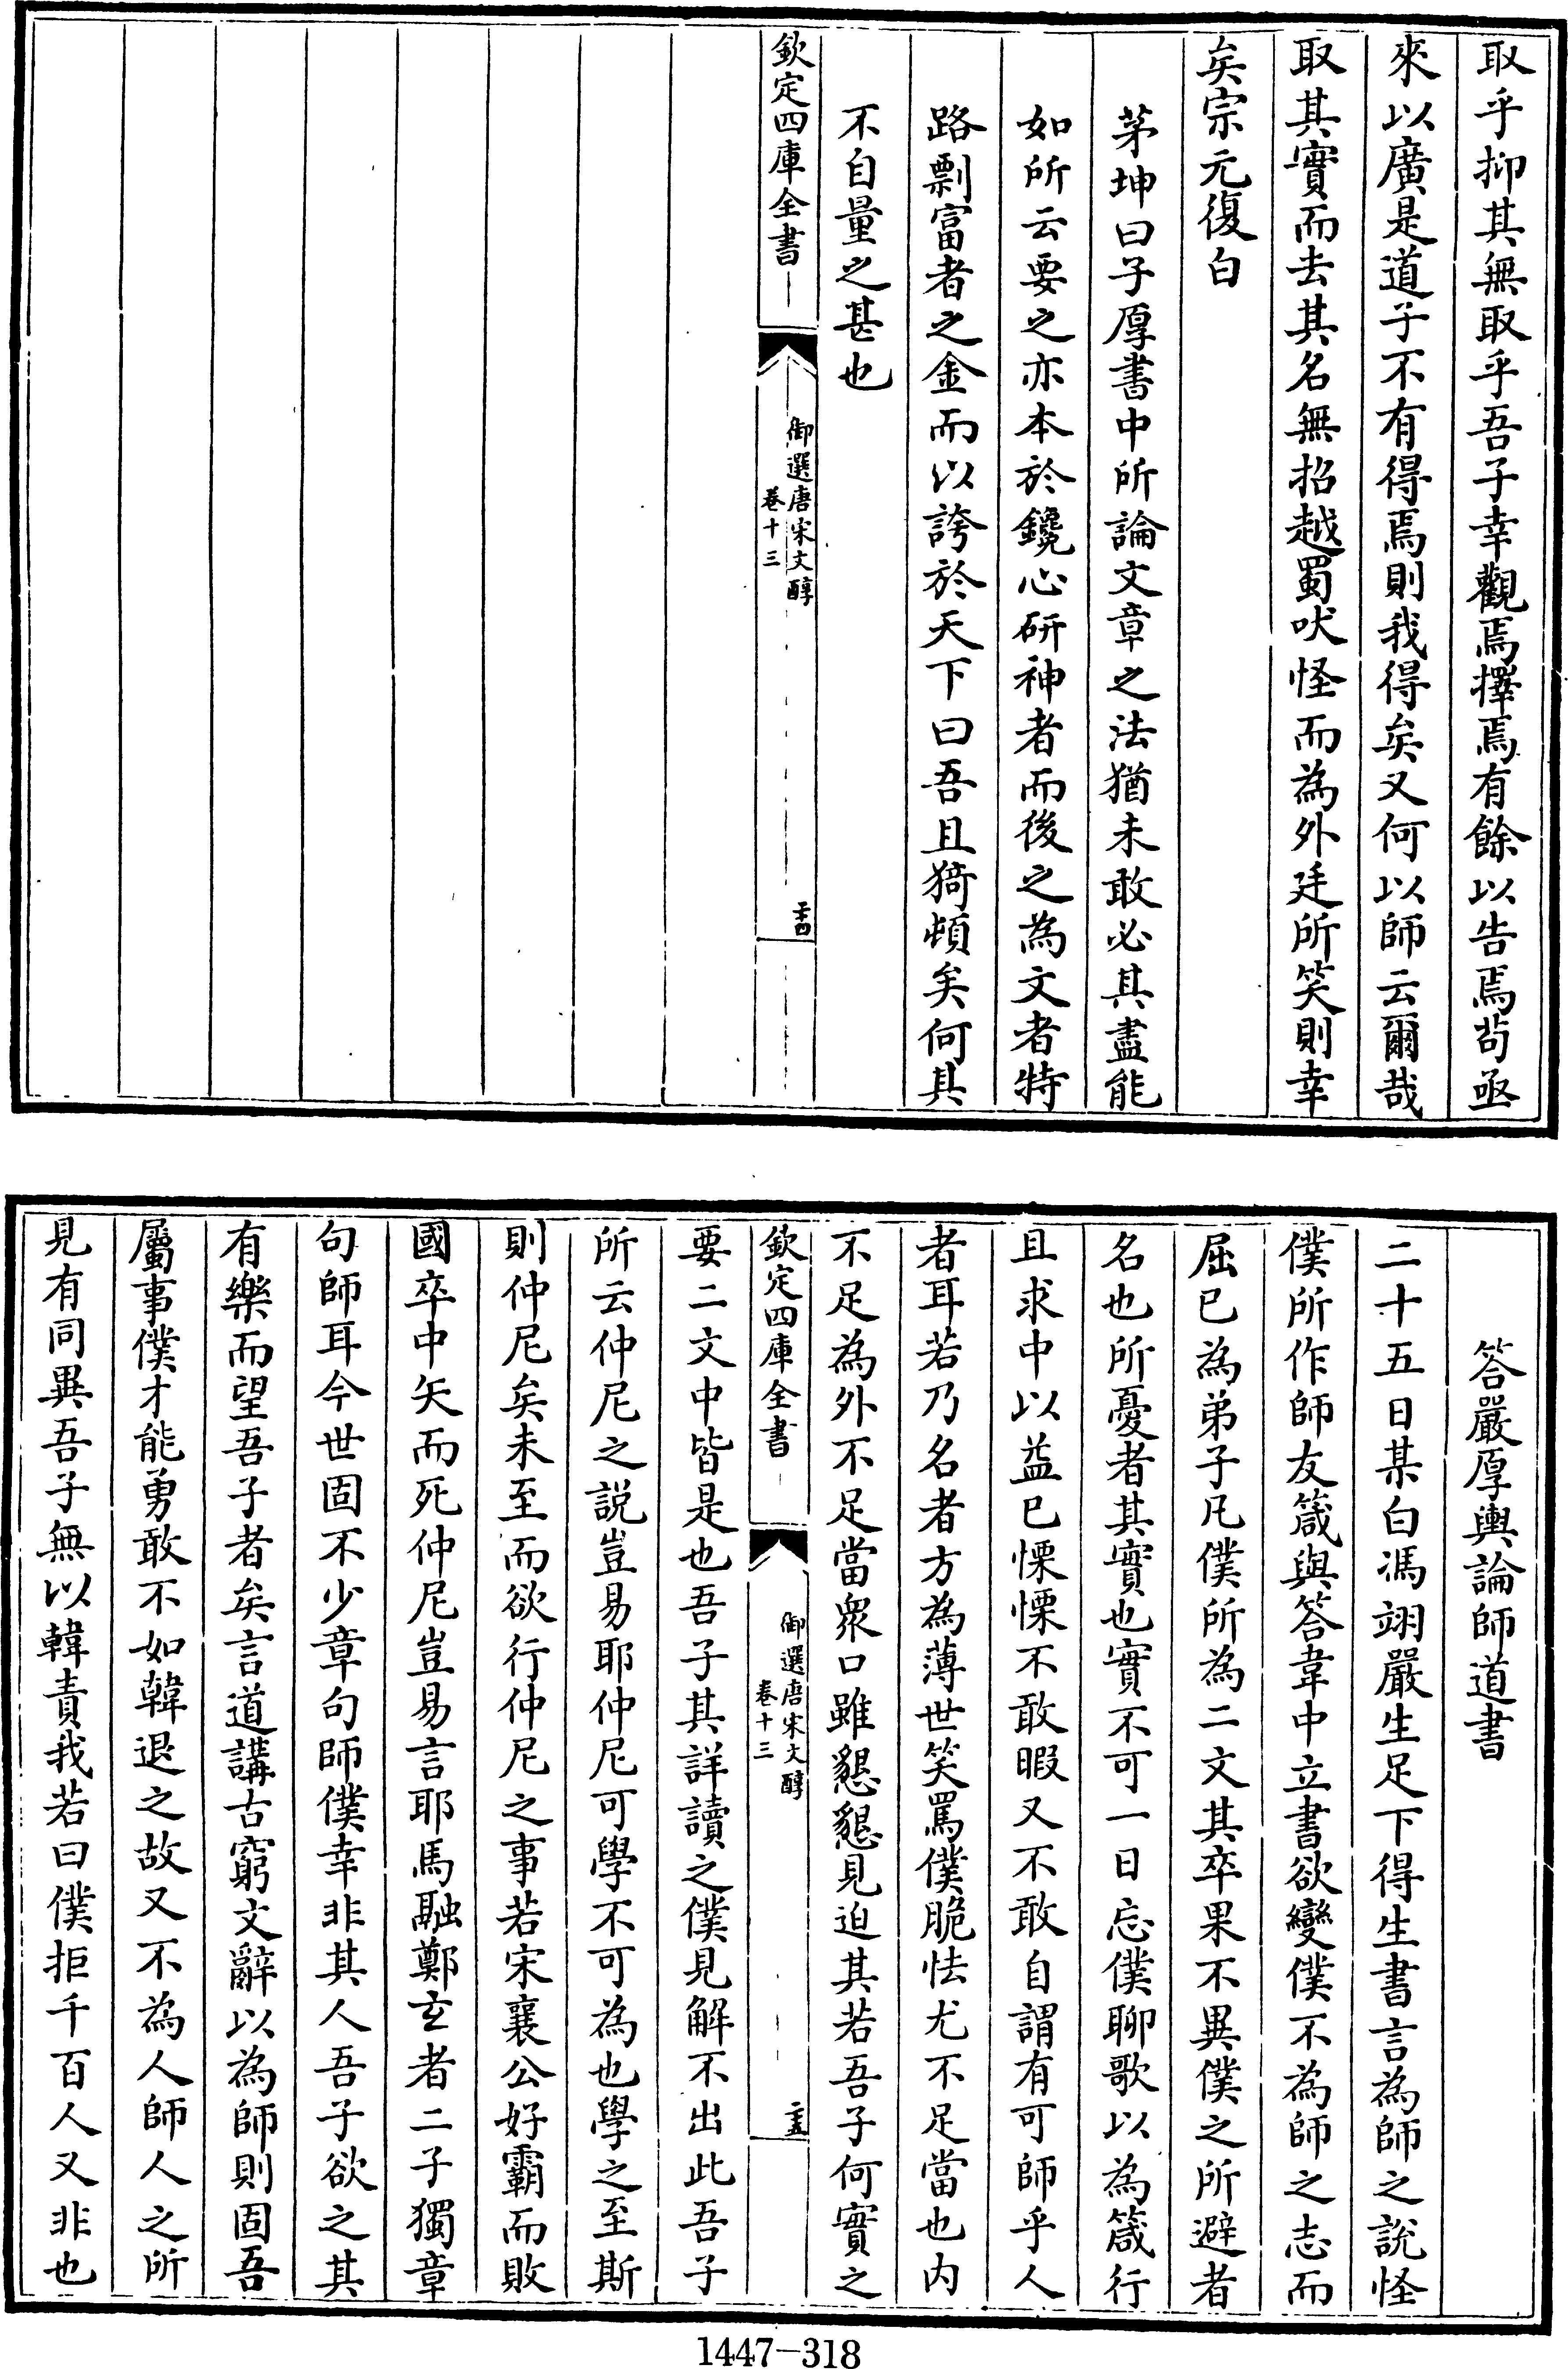 取乎抑其無取乎吾子幸觀焉擇焉有餘以告焉茍亟
來以廣是道子不有得焉則我得矣又何以師云爾哉
取其實而去其名無招越蜀吠怪而為外廷所笑則幸
矣宗元復白
茅坤曰子厚書中所論文章之法猶未敢必其盡能
如所云要之亦本於鑱心研神者而後之為文者特
路剽富者之金而以誇於天下曰吾且猗頓矣何其
不自量之甚也
欽定四庫全書
御選唐宋文醇
卷十三
二十四
答嚴厚輿論師道書
二十五日某白馮翊嚴生足下得生書言為師之說怪
僕所作師友箴與答韋中立書欲變僕不為師之志而
屈已為弟子凡僕所為二文其卒果不異僕之所避者
名也所憂者其實也實不可一日忘僕聊歌以為箴行
且求中以益已慄慄不敢暇又不敢自謂有可師乎人
者耳若乃名者方為薄世笑罵僕脆怯尤不足當也内
不足為外不足當衆口雖懇懇見迫其若吾子何實之
欽定四庫全書
御選唐宋文醇
卷十三
二十五
要二文中皆是也吾子其詳讀之僕見解不出此吾子
所云仲尼之說豈易耶仲尼可學不可為也學之至斯
則仲尼矣未至而欲行仲尼之事若宋襄公好霸而敗
國卒中矢而死仲尼豈易言耶馬融鄭玄者二子獨章
句師耳今世固不少章句師僕幸非其人吾子欲之其
有樂而望吾子者矣言道講古窮文辭以為師則固吾
屬事僕才能勇敢不如韓退之故又不為人師人之所
見有同異吾子無以韓責我若曰僕拒千百人又非也
1447-318